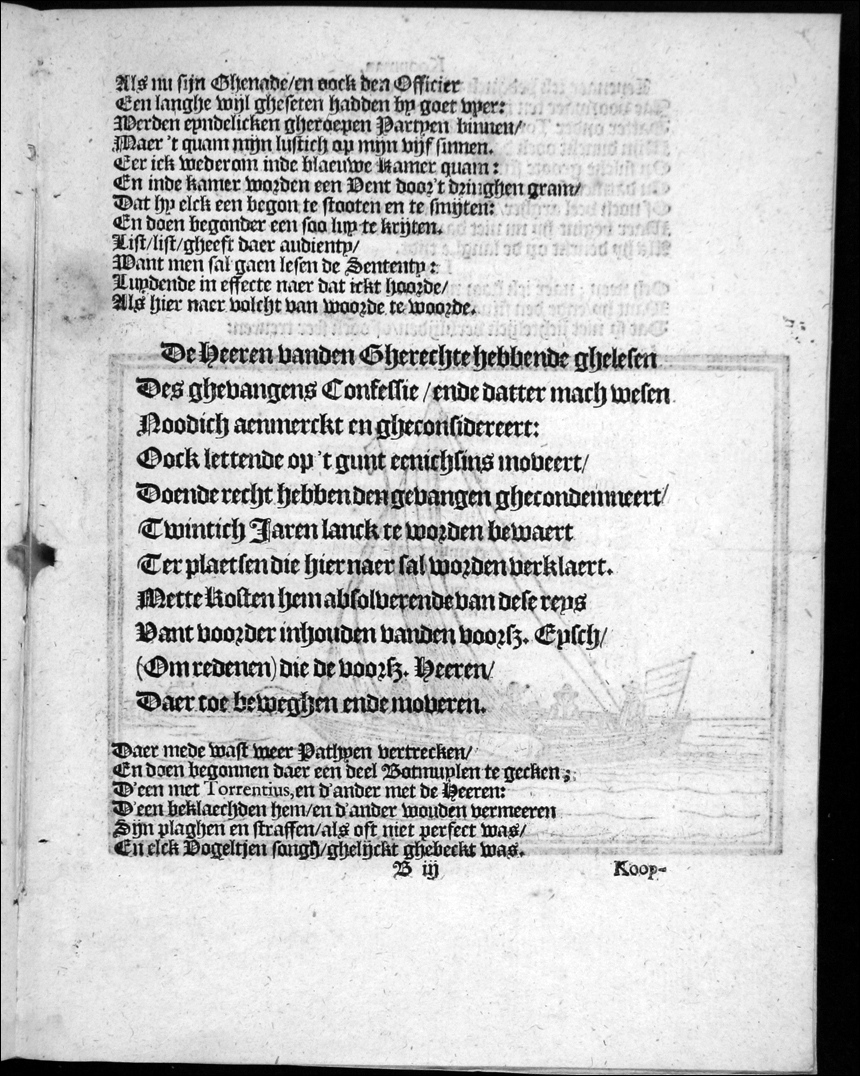 Als nu sijn Ghenade/en oock den Officier
Een langhe wijl gheseten hadden by goet vyer:
Werden eyndelicken gheroepen Partyen binnen/
Maer 't quam mijn lustich op mijn vijf sinnen.
Eer ick wederom inde blaeuwe Kamer quam:
En inde kamer worden een Vent door't dringhen gram/
Dat hy elck een begon te stooten en te smijten:
En doen begonder een soo luy te krijten.
List/list/gheeft daer audienty/
Want men sal gaen lesen de Sententy:
Luydende in effecte naer dat ickt hoorde/
Als hier naer volcht van woorde te woorde.
De Heeren vanden Gherechte hebbende ghelesen
Des ghevangens Confessie/ende datter mach wesen
Noodich aenmerckt en gheconsidereert:
Oock lettende op 't gunt eenichsins moveert/
Doende recht hebben den gevangen ghecondemneert/
Twintich Jaren lanck te worden bewaert
Ter plaetsen die hier naer sal worden verklaert.
Mette Kosten hem absolverende van dese reys
Vant voorder inhouden vanden voorsz. Eysch/
(Om redenen) die de voorsz. Heeren/
Daer toe beweghen ende moveren.
Daer mede wast weer Pathyen vertrecken/
En doen begonnen daer een deel Botmuylen te gecken;
D'een met Torrentius, en d'ander met de Heeren:
D'een beklaechden hem/en d'ander wouden vermeeren
Sijn plaghen en straffen/als oft niet perfect was/
En elck Vogeltjen songh/ghelijckt ghebeckt was.
B iij Koop-